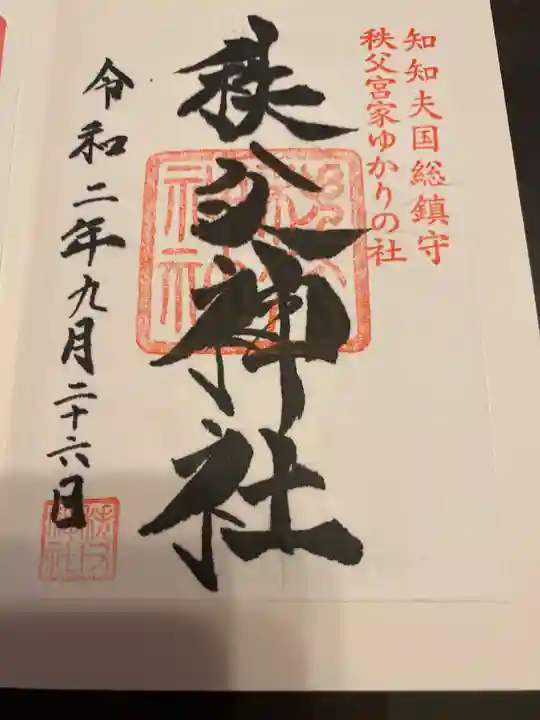 知知夫国総鎮守
秩父宮家ゆかりの社
秩父神社
令和二年九月二十六日
秩父
神社